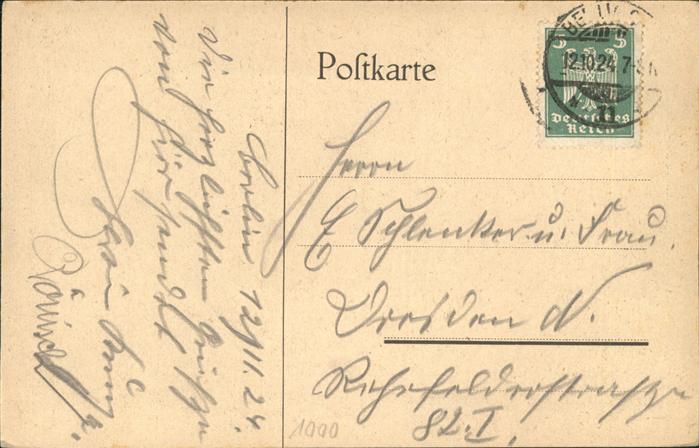 Postkarte
BERLIN
12.10.24 7-8 N
N
5 5
Deutsches
Reich
Herrn
E Schlenker u. Frau.
Dresden N.
Rehefelderstrasse
82. I.
1000
Berlin 12/11. 24.
Die herzlichsten Grüße
von hier sendet